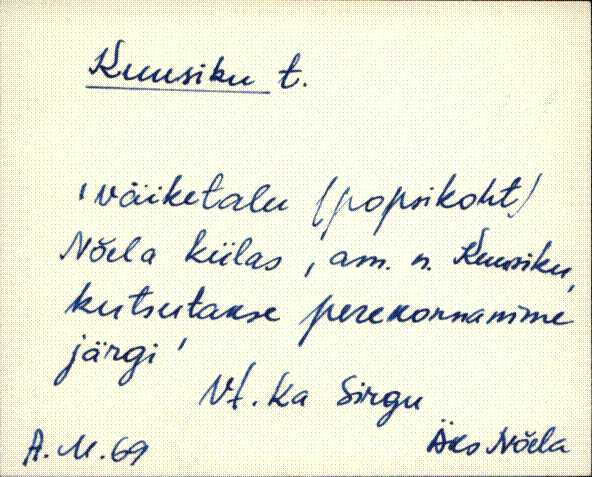 Kuusiku t.
'väiketalu (popsikoht)
Nõela külas, am. n. Kuusiku,
kutsutakse perekonnanime
järgi'
Vt. ka Sirgu
Äks Nõela
A. M. 69